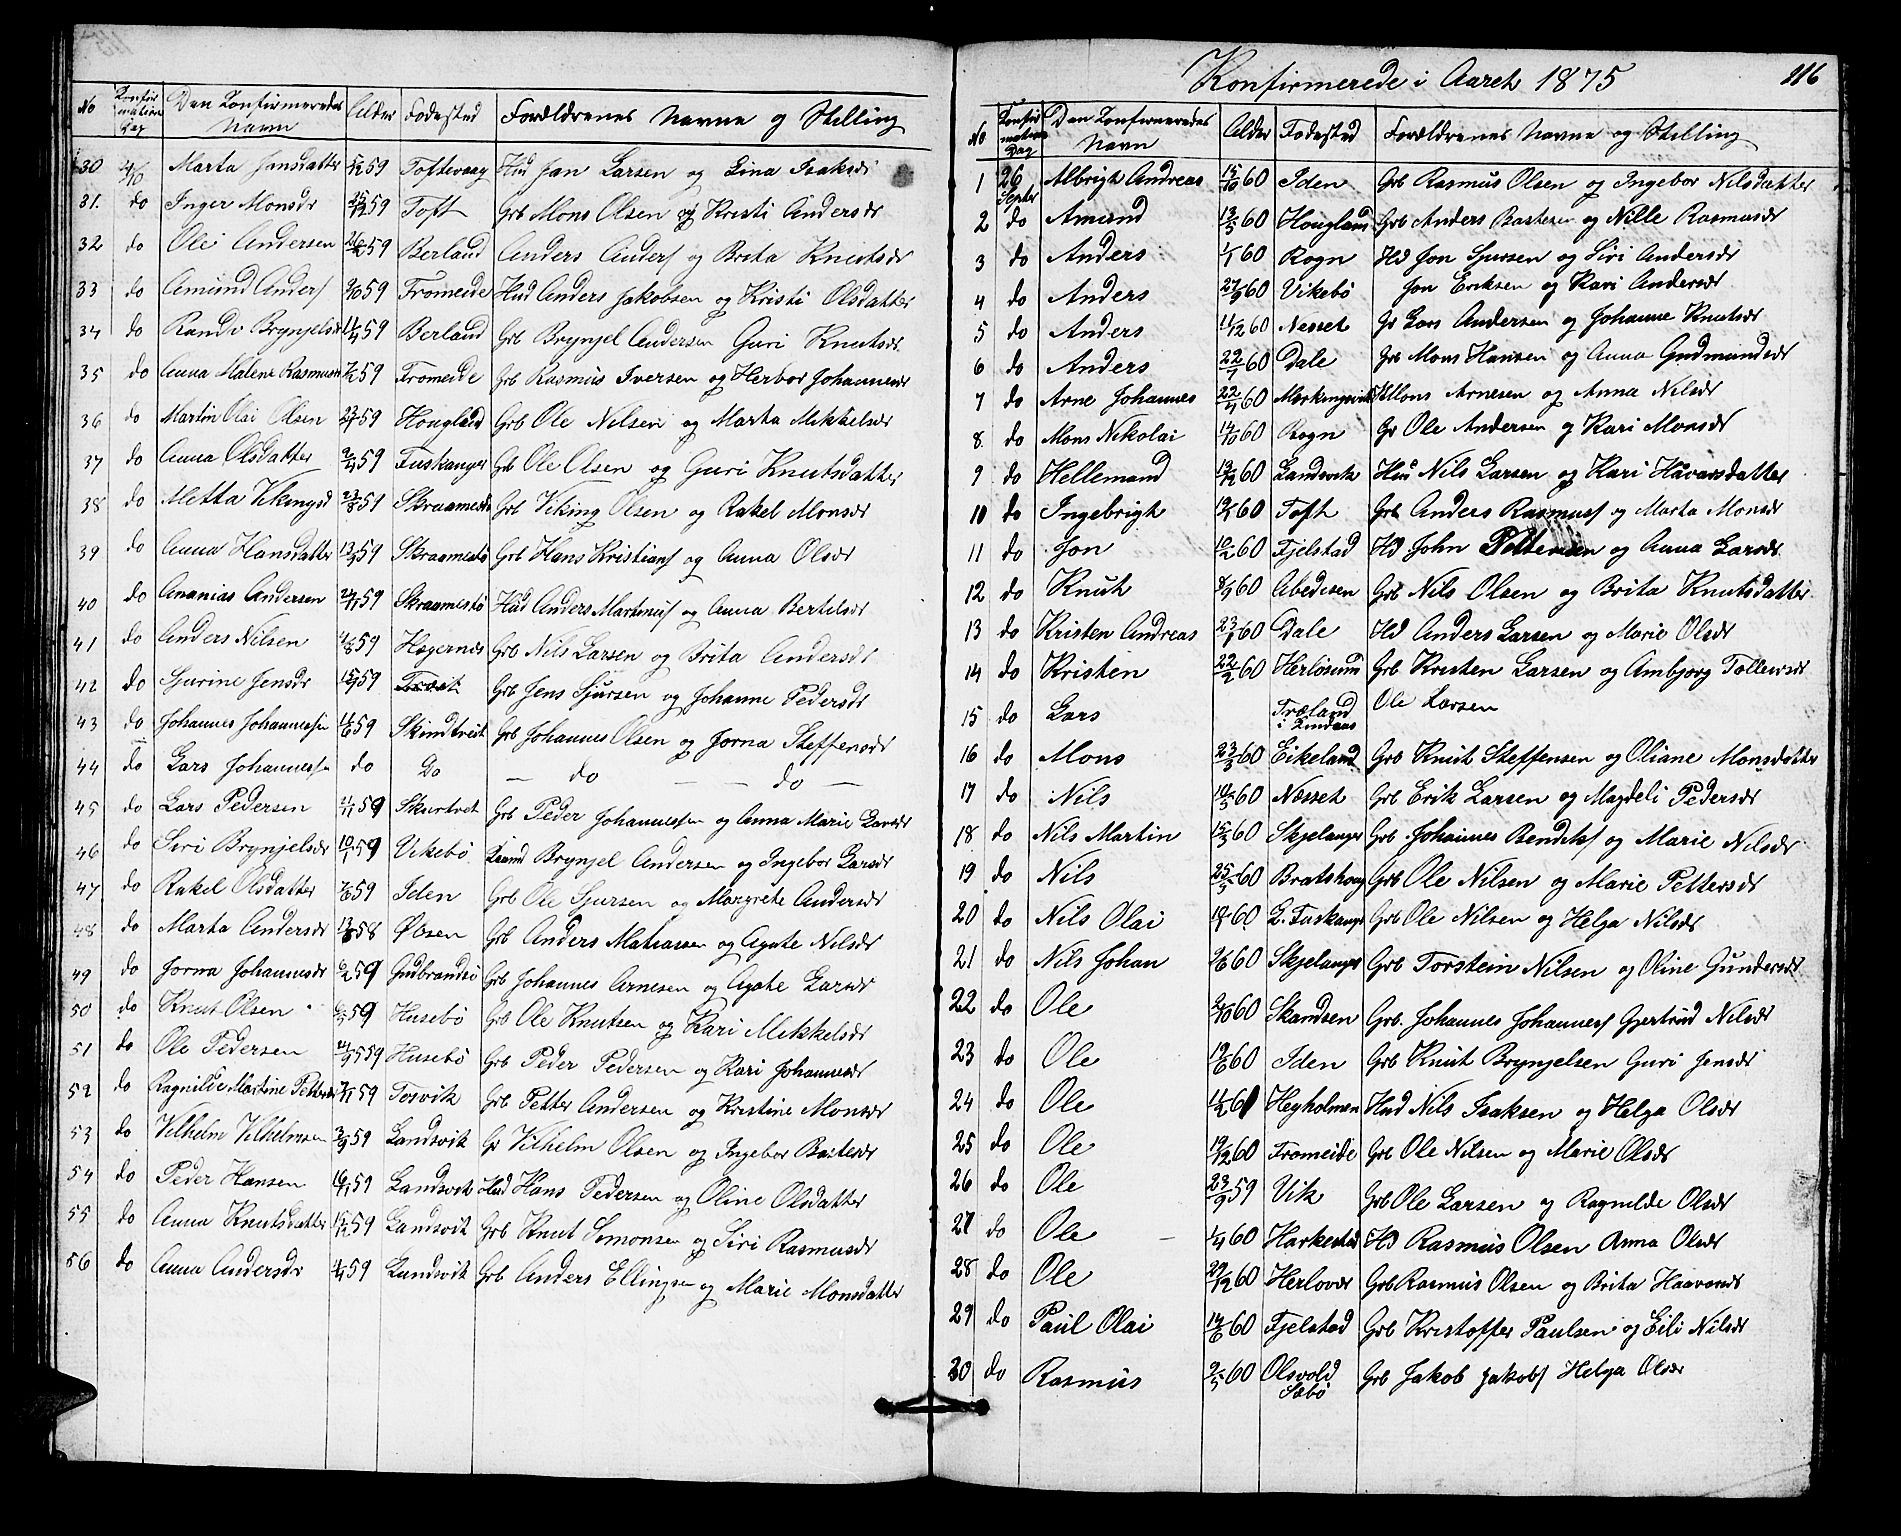 No Konfirmations Dag Den Konfirmeredes Navn Alder Fodested Forældrenes Navne og Stilling
30 Marta Jansdatter 59 Toftevaag Hud Jan Larsen og Lina Isaksdr
31. do Inger Monsdr 59 Toft Grb Mons Olsen og Kristi Andersdr
32 do Ole Andersen 59 Berland Anders Anders og Brita Knutsdr
33 do Amund Anders 59 Fromeide Hud Anders Jakobsen og Kristi Olsdatter
34 do Randv Brynjelsdr 59 Berland Grb Brynjel Andersen Guri Knutsdr
35 do Anna Malene Rasmusen 59 Fromeide Grb Rasmus Iversen og Herbor Johannesdr
36 do Martin Olai Olsen 59 Hougland Grb Ole Nilsen og Marta Mikkelsdr
37 do Anna Olsdatter 59 Fuskanger Grb Ole Olsen og Guri Knutsdatter
38 do Metta Vikingsd 59 Skraamestø Grb Viking Olsen og Rakel Monsdr
39 do Anna Hansdatter 59 Skraamestø Grb Hans Kristians og Anna Olsdr
40 do Ananias Andersen 59 Skraamestø Hud Anders Martinus og Anna Bertelsdr
41 do Anders Nilsen 59 Hagernæs Grb Nils Larsen og Brita Andersdr
42 do Sjurine Jensdr 59 Grb Jens Sjursen og Johanne Pedersdr
43 do Johannes Johannessen 59 Skindtveit Grb Johannes Olsen og Jorna Steffensdr
44 do Lars Johannessen do Do — do — do —
45 do Lars Pedersen 59 Skurtveit Grb Peder Johannessen og Anna Marie Larsdr
46 do Siri Brynjelsdr 59 Vikebø Brynjel Andersen og Ingebor Larsdr
47 do Rakel Olsdatter 59 Iden Grb Ole Sjursen og Margrete Andersdr
48 do Marta Andersdr 58 Øvsen Grb Anders Matiassen og Agate Nilsdr
49 do Jorna Johannesdr 59 Gudbrandsø Grb Johannes Arnesen og Agate Larsdr
50 do Knut Olsen 59 Husebø Grb Ole Knutsen og Kari Mikkelsdr
51 do Ole Pedersen 59 Husebø Grb Peder Pedersen og Kari Johannesdr
52 do Ragnilde Martine Pettersdr 59 Torvik Grb Petter Andersen og Kristine Monsdr
53 do Vilhelm Vilhelmsen 3/9 59 Landsvik Gr Vilhelm Olsen og Ingebor Bastesdr
54 do Peder Hansen 59 Landsvik Hud Hans Pedersen og Oline Olsdatter
55 do Anna Knutsdatter 59 Landsvik Grb Knut Simonsen og Siri Rasmusdr
56 do Anna Andersdr 59 Landsvik Grb Anders Ellingsen og Marie Monsdatter
Konfirmerede i Aaret 1875 116
No Konfirmations Dag Den Konfirmeredes Navn Alder Fodested Forældrenes Navne og Stilling
1 26 Septbr Albrigt Andreas 15/10 60 Iden Grb Rasmus Olsen og Ingebor Nilsdatter
2 do Amund 13/5 60 Hougland Grb Anders Bastesen og Nille Rasmusdr
3 do Anders 1/1 60 Rogn Hd Jon Sjursen og Siri Andersdr
4 do Anders 60 Vikebø Jon Eriksen og Kari Andersdr
5 do Anders 11/12 60 Nesset Gr Lars Andersen og Johanne Knutsdr
6 do Anders 22/7 60 Dale Grb Mons Hansen og Anna Gudmundsdr
7 do Arne Johannes 22/4 60 Mons Arnesen og Anna Nilsdr
8 do Mons Nikolai 14/10 60 Rogn Gr Ole Andersen og Kari Monsdr
9 do Hellemand 60 Landsvik Hus Nils Larsen og Kari Håvarsdatter
10 do Ingebrigt 60 Toft Grb Anders Rasmus og Marta Monsdr
11 do Jon 60 Fjelstad Hd John Pettersen og Anna Larsdr
12 do Knut 8/9 60 Abedisen Grb Nils Olsen og Brita Knutsdatter
13 do Kristen Andreas 23/1 60 Dale Hd Anders Larsen og Marie Olsdr
14 do Kristen 22/2 60 Herlösund Grb Kristen Larsen og Ambjorg Tollevsdr
15 do Lars Træland i Lindaas Ole Larsen
16 do Mons 23/3 60 Eikeland Grb Knut Steffensen og Oliane Monsdatter
17 do Nils 60 Nesset Grb Erik Larsen og Magdeli Pedersdr
18 do Nils Martin 15/3 60 Skjelanger Grb Johannes Bendiks og Marie Nilsdr
19 do Nils 25/5 60 Bratshoug Grb Ole Nilsen og Marie Pettersdr
20 do Nils Olai 60 L. Fuskanger Grb Ole Nilsen og Helga Nilsdr
21 do Nils Johan 60 Skjelanger Grb Torstein Nilsen og Oline Gundersdr
22 do Ole 60 Skandsen Grb Johannes Johannes Gjertrud Nilsdr
23 do Ole 60 Iden Grb Knut Brynjelsen Guri Jensdr
24 do Ole 61 Heyholmen Hud Nils Isaksen og Helga Olsdr
25 do Ole 19/12 60 Fromeide Grb Ole Nilsen og Marie Olsdr
26 do Ole 23/9 59 Vik Grb Ole Larsen og Ragnilde Olsdr
27 do Ole 1/4 60 Harkestad Hd Rasmus Olsen Anna Olsdr
28 do Ole 29/12 60 Herlovær Grb Rasmus Olsen og Brita Haavarsdr
29 do Paul Olai 14/6 60 Fjelstad Grb Kristoffer Paulsen og Eili Nilsdr
30 do Rasmus 2/5 60 Olsvold Sæbø Grb Jakob Jakobs Helga Olsdr